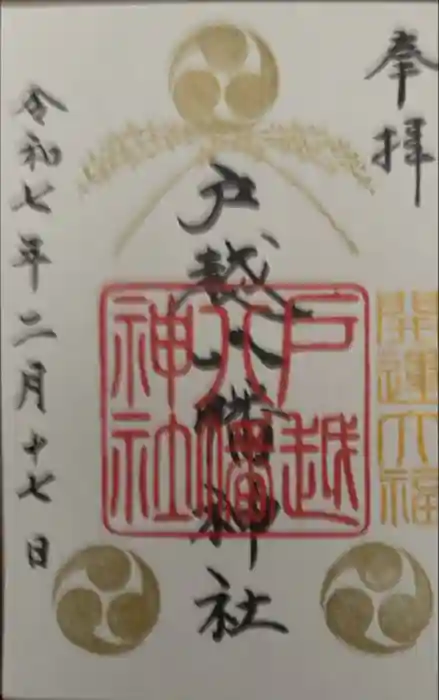 奉拝
開運大福
戸越八幡神社
戸越
八幡
神社
令和七年二月十七日